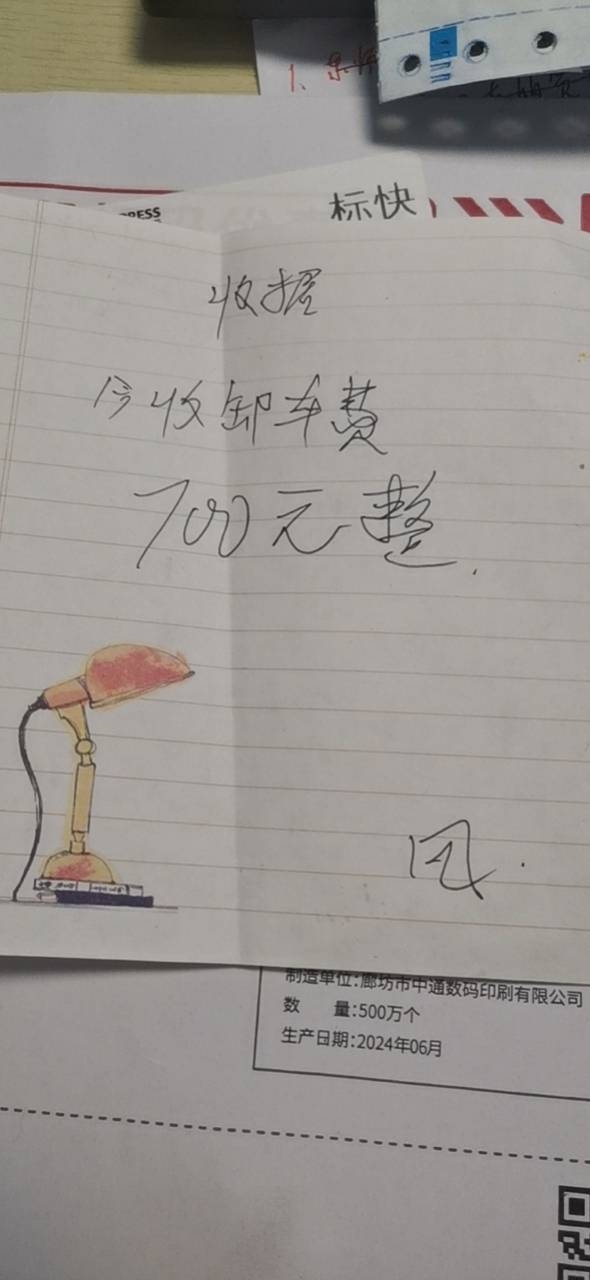 1、
标快
PRESS
收据
今收卸车费
700元整.
制造单位:廊坊市中通数码印刷有限公司
数 量:500万个
生产日期:2024年06月